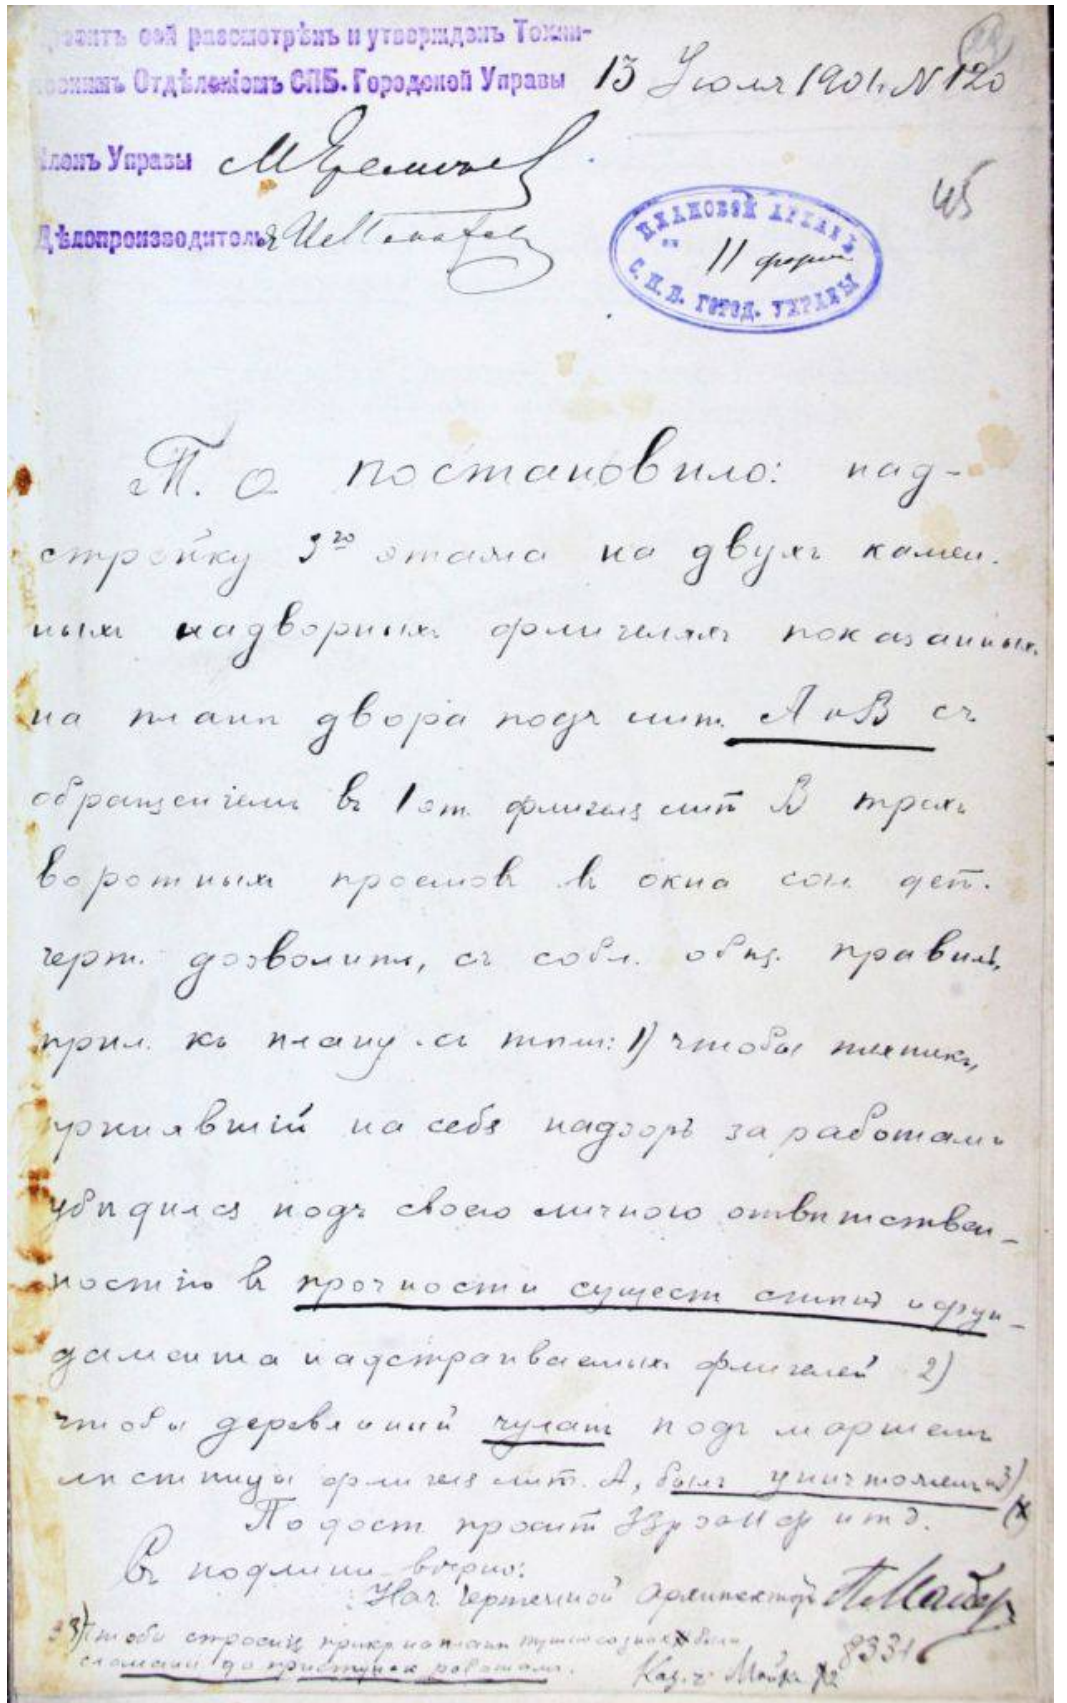 разсмотрѣнъ и утвержденъ Техни-
Отдѣленіемъ СПБ. Городской Управы 13 Іюля 1901 № 120
Членъ Управы
45
Дѣлопроизводитель
ПЛАНОВОЙ АРХИВЪ
11 форм
С.П.Б. ГОРОД. УПРАВЫ
Т. О постановило: над-
стройку 3го этажа на двухъ камен.
ныхъ надворныхъ флигеляхъ показанныхъ
на планѣ двора подъ лит. А и В съ
обращеніемъ въ 1 эт. флигеля лит В трехъ
воротныхъ проемовъ въ окна сог. дет.
черт. дозволить, съ собл. общ. правилъ,
прил. къ плану съ тѣмъ: 1) чтобы техникъ,
принявшій на себя надзоръ за работами
убѣдился подъ своею личною отвѣтствен-
ностію въ прочности сущест стѣнъ и фун-
дамента надстраиваемыхъ флигелей 2)
чтобы деревянный чуланъ подъ маршемъ
лѣстницы флигеля лит. А, былъ уничтоженъ 3)
По дост. просит 33р и т д.
Въ подлин. вѣрно:
Нач. Чертежной Архитекторъ П. Майеръ
3) чтобы строенія на планѣ были
сломаны до приступа работами.
8331